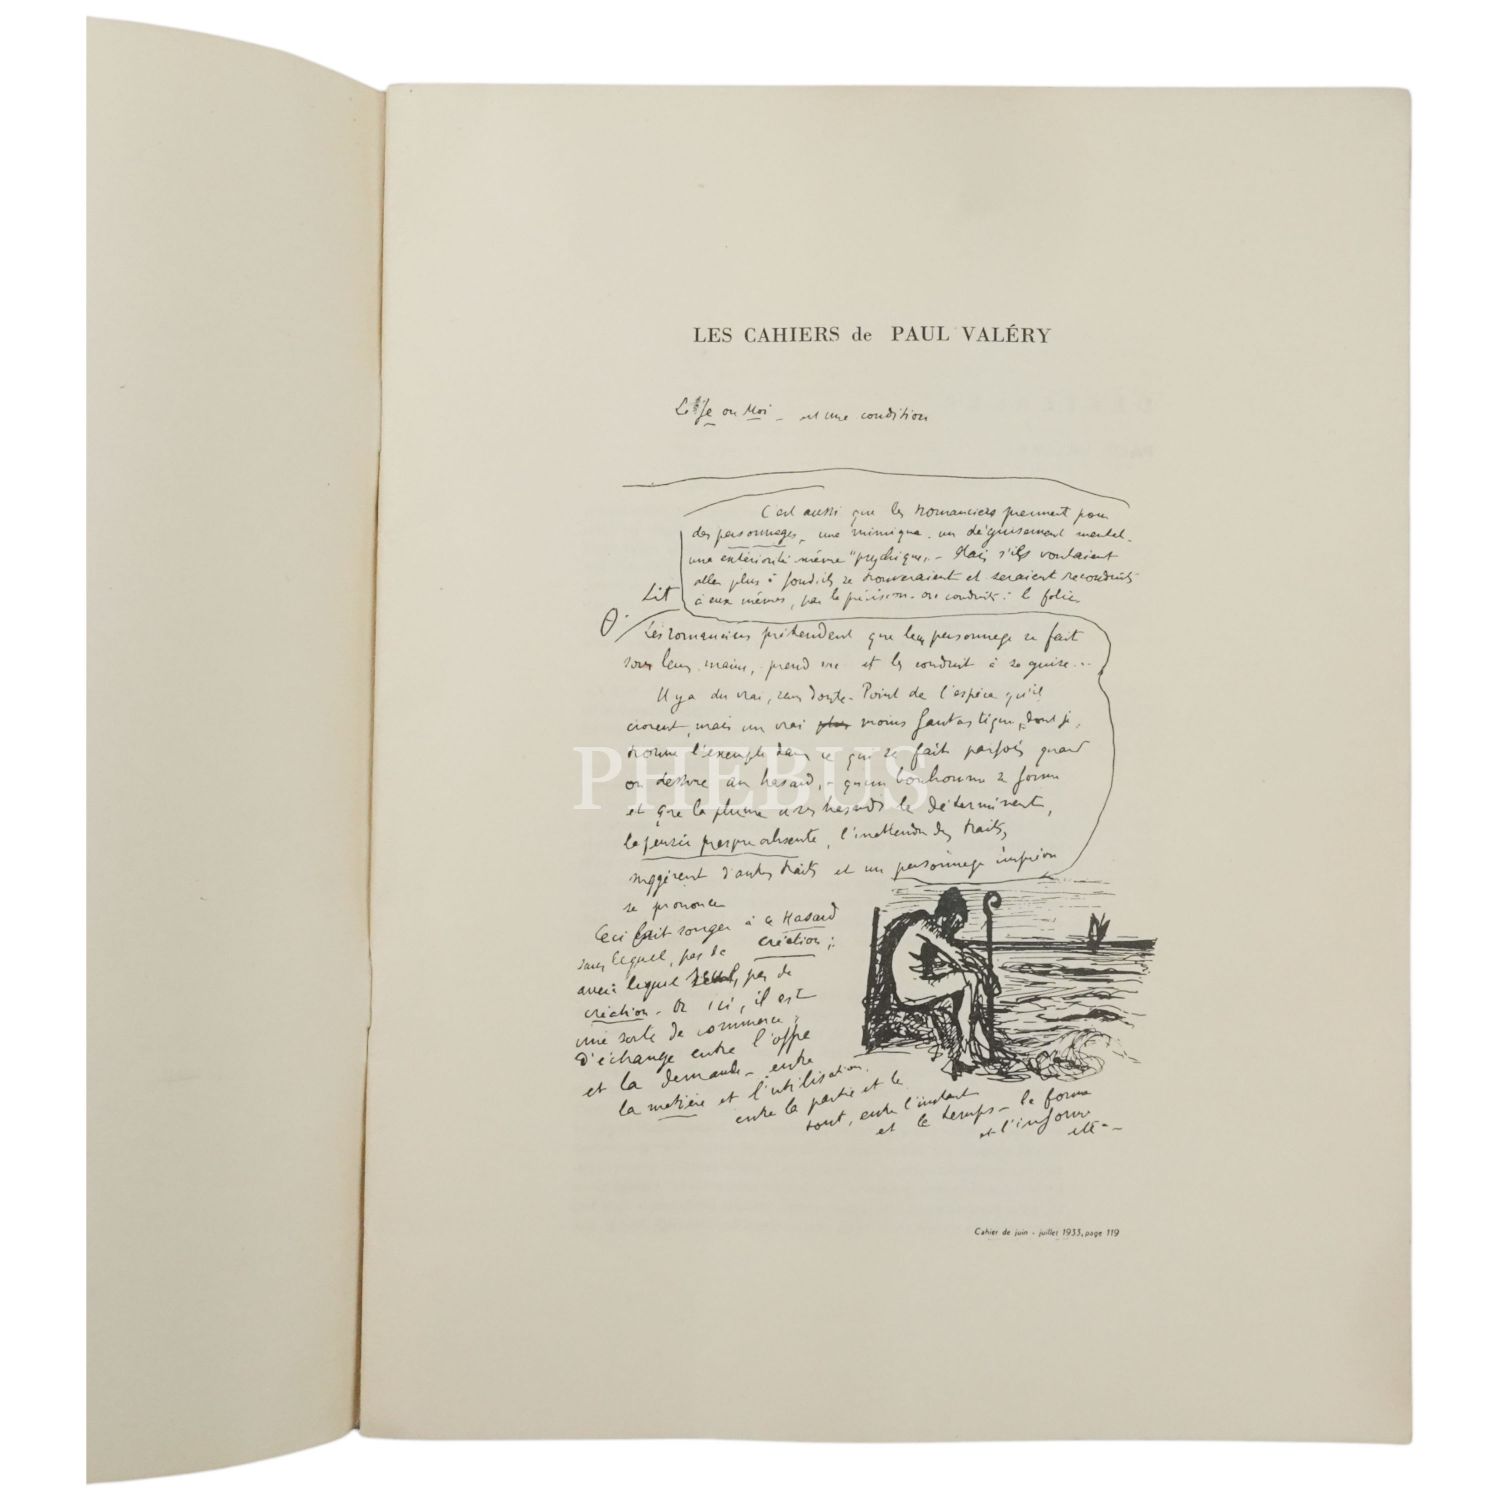 LES CAHIERS de PAUL VALÉRY
Le Je ou Moi - est une condition
C'est aussi que les romanciers prennent pour
des personnages, une mimique, un déguisement mental,
une extériorité même "psychique. - Mais s'ils voulaient
aller plus à fond ils se trouveraient et seraient reconduits
à eux mêmes, par la précision - ou conduits à la folie
Lit
θ.
Les romanciers prétendent que leur personnage se fait
sous leurs mains, prend vie et les conduit à sa guise...
Il y a du vrai, sans doute - Point de l'espèce qu'ils
croient, mais un vrai plus moins fantastique, dont je
trouve l'exemple dans ce que se fait parfois quand
on dessine au hasard, - qu'un bonhomme se forme
et que la plume a ses hasards le déterminent,
la pensée presque absente, l'inattendu des traits,
suggèrent d'autres traits et un personnage
se prononce
Ceci fait songer à ce Hasard
sans lequel, pas de création;
avec lequel seul, pas de
création - Or ici, il est
une sorte de commerce,
d'échange entre l'offre
et la demande - entre
la matière et l'utilisation.
entre la partie et le
tout, entre l'instant
et le temps - la forme
et l'informe
etc - -
PHEBUS
Cahier de juin - juillet 1933, page 119